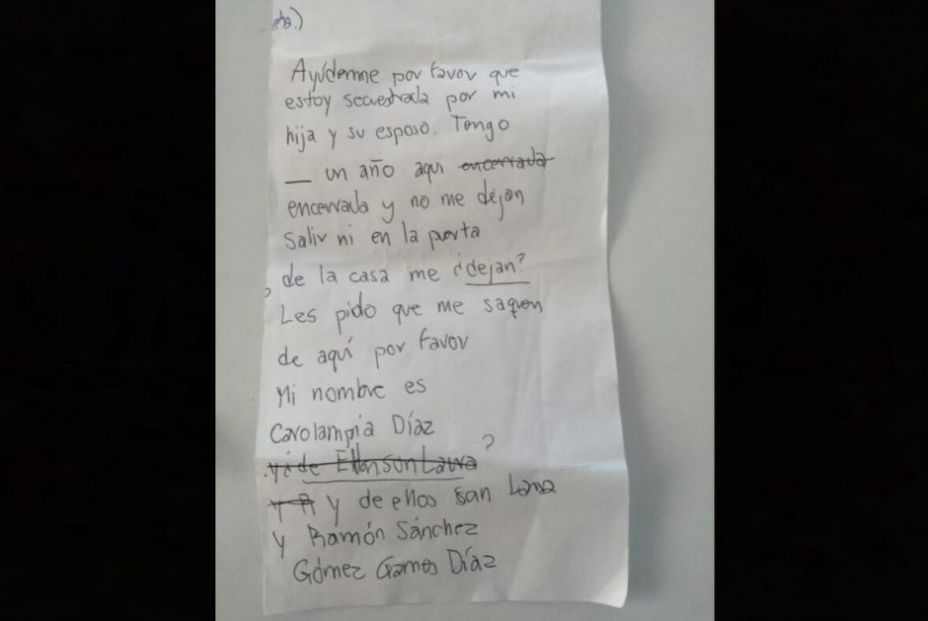 Ayúdenme por favor que
estoy secuestrada por mi
hija y su esposo. Tengo
— un año aqui encerrada
encerrada y no me dejan
Salir ni en la puerta
de la casa me ¿dejan?
Les pido que me saquen
de aquí por favor
Mi nombre es
Carolampia Díaz
?
y de ellos san
y Ramón Sánchez
Gómez Díaz